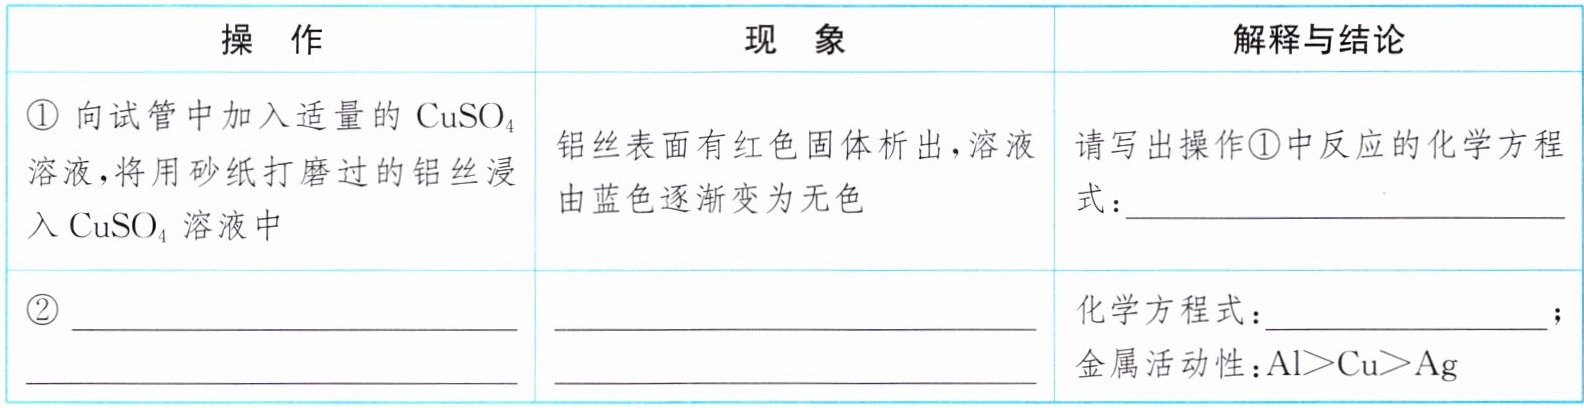 操 作
现 象
解释与结论
① 向试管中加入适量的 CuSO₄
溶液,将用砂纸打磨过的铝丝浸
入 CuSO₄ 溶液中
铝丝表面有红色固体析出,溶液
由蓝色逐渐变为无色
请写出操作①中反应的化学方程
式:
②
化学方程式: ;
金属活动性:Al>Cu>Ag